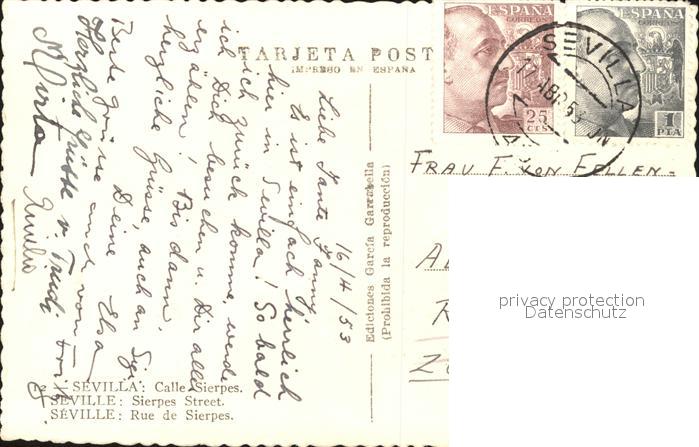 TARJETA POST
IMPRESO EN ESPAÑA
ESPAÑA
CORREOS
25
CTS
ESPAÑA
CORREOS
1
PTA
SEVILLA
17 ABR 53
FRAU F. VON FELLEN-
privacy protection
Datenschutz
Ediciones García Garrabella
(Prohibida la reproducción)
16/4/53
Liebe Tante Fanny!
Es ist einfach herrlich
hier in Sevilla! So bald
ich zurück komme, werde
ich Dich besuchen u. Dir alles
erzählen. Bis dann,
herzliche Grüsse, auch an
Deine Elsa
Beste Grüsse und von
Herzliche Grüsse v. Trude
Emilio
12 - SEVILLA: Calle Sierpes.
SEVILLE: Sierpes Street.
SÉVILLE: Rue de Sierpes.